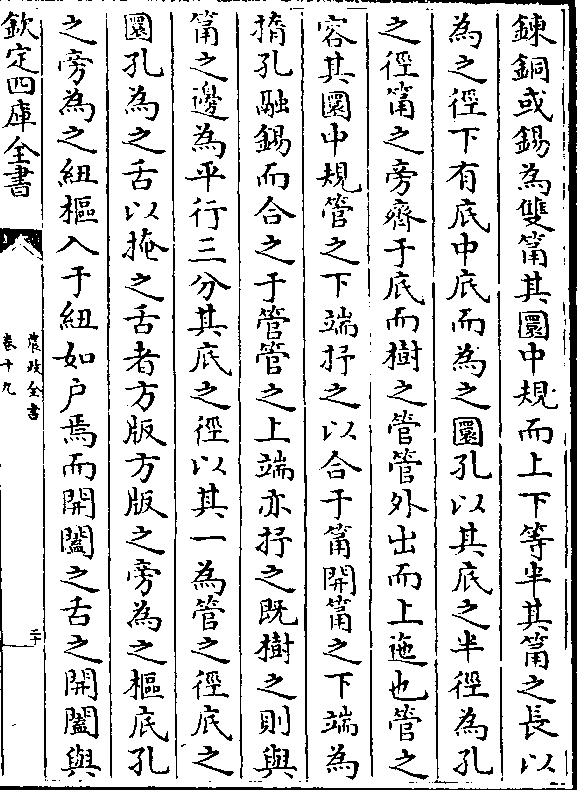 鍊銅或錫為雙筩其圜中規而上下等半其筩之長以
為之徑下有底中底而為之圜孔以其底之半徑為孔
之徑筩之旁齊于底而樹之管管外出而上迤也管之
容其圜中規管之下端抒之以合于筩開筩之下端為
撱孔融錫而合之于管管之上端亦抒之既樹之則與
筩之邊為平行三分其底之徑以其一為管之徑底之
圜孔為之舌以掩之舌者方版方版之旁為之樞底孔
之旁為之紐樞入于紐如户焉而開闔之舌之開闔與
欽定四庫全書
農政全書
卷十九
二十